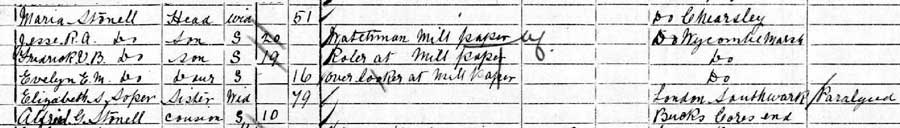 Maria Stonell Head Wid 51 Do Chearsley
Jesse R. A. Do son S 20 Watchman Mill paper Do Wycombe Marsh
Fredrick V. B. Do son S 19 Roler at Mill paper Do
Evelyn E. M. Do daur S 16 over looker at Mill Paper Do
Elizabeth S. Soper Sister Wid 79 London Southwark Paralysed
Alfred G. Stonell cousin S 10 Bucks Cores end